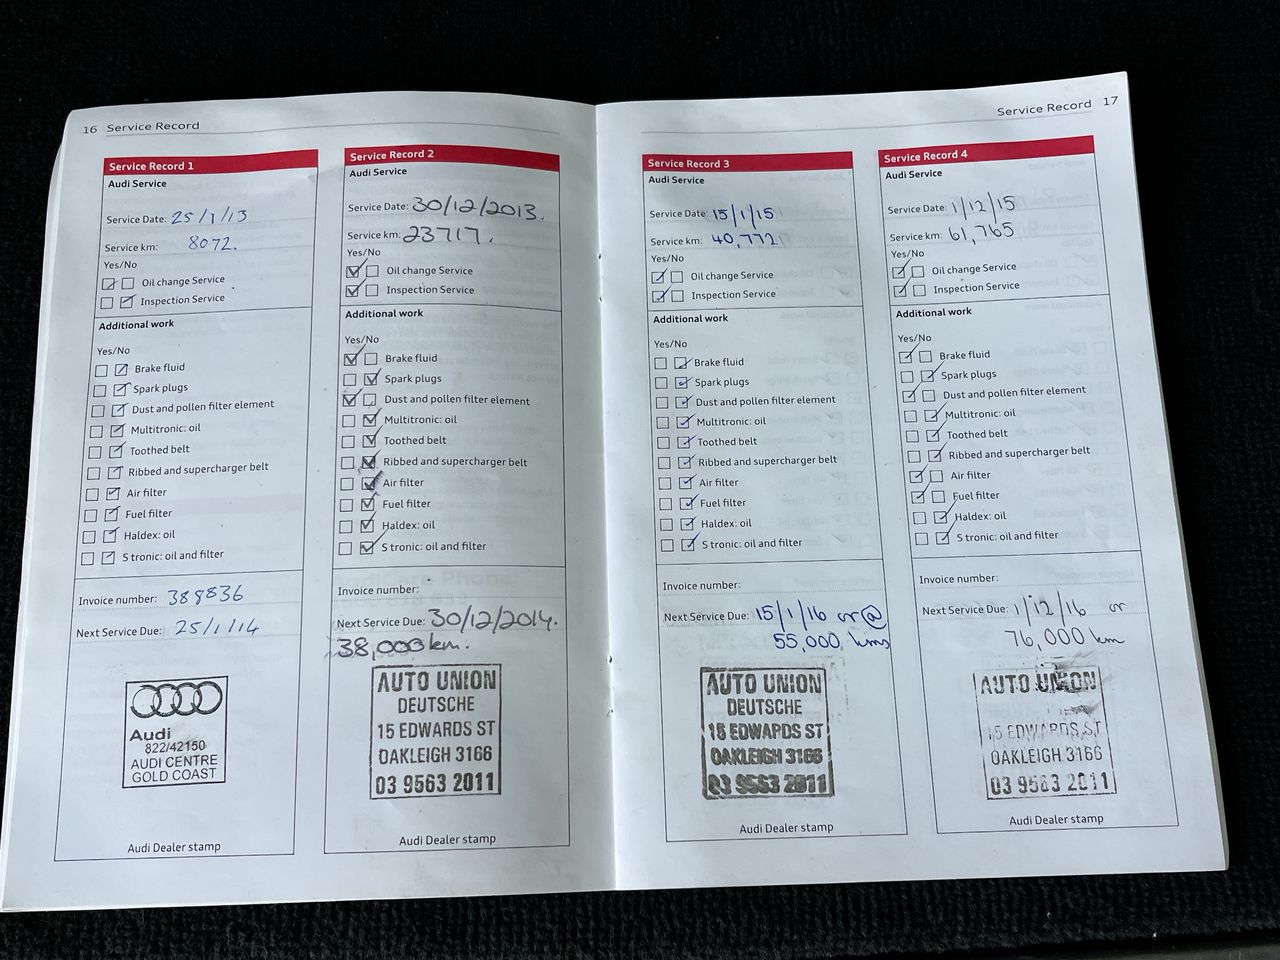 16 Service Record
Service Record 1
Audi Service
Service Date: 25/1/13
Service km: 8072.
Yes/No
Oil change Service
Inspection Service
Additional work
Yes/No
Brake fluid
Spark plugs
Dust and pollen filter element
Multitronic: oil
Toothed belt
Ribbed and supercharger belt
Air filter
Fuel filter
Haldex: oil
S tronic: oil and filter
Invoice number: 388836
Next Service Due: 25/1/14
Audi
822/42150
AUDI CENTRE
GOLD COAST
Audi Dealer stamp
Service Record 2
Audi Service
Service Date: 30/12/2013.
Service km: 23717.
Yes/No
Oil change Service
Inspection Service
Additional work
Yes/No
Brake fluid
Spark plugs
Dust and pollen filter element
Multitronic: oil
Toothed belt
Ribbed and supercharger belt
Air filter
Fuel filter
Haldex: oil
S tronic: oil and filter
Invoice number:
Next Service Due: 30/12/2014.
38,000 km.
AUTO UNION
DEUTSCHE
15 EDWARDS ST
OAKLEIGH 3166
03 9563 2011
Audi Dealer stamp
Service Record 17
Service Record 3
Audi Service
Service Date: 15/1/15
Service km: 40,772
Yes/No
Oil change Service
Inspection Service
Additional work
Yes/No
Brake fluid
Spark plugs
Dust and pollen filter element
Multitronic: oil
Toothed belt
Ribbed and supercharger belt
Air filter
Fuel filter
Haldex: oil
S tronic: oil and filter
Invoice number:
Next Service Due: 15/1/16 or @
55,000 kms
AUTO UNION
DEUTSCHE
15 EDWARDS ST
OAKLEIGH 3166
03 9563 2011
Audi Dealer stamp
Service Record 4
Audi Service
Service Date: 1/12/15
Service km: 61,765
Yes/No
Oil change Service
Inspection Service
Additional work
Yes/No
Brake fluid
Spark plugs
Dust and pollen filter element
Multitronic: oil
Toothed belt
Ribbed and supercharger belt
Air filter
Fuel filter
Haldex: oil
S tronic: oil and filter
Invoice number:
Next Service Due: 1/12/16 or
76,000 km
AUTO UNION
15 EDWARDS ST
OAKLEIGH 3166
03 9563 2011
Audi Dealer stamp